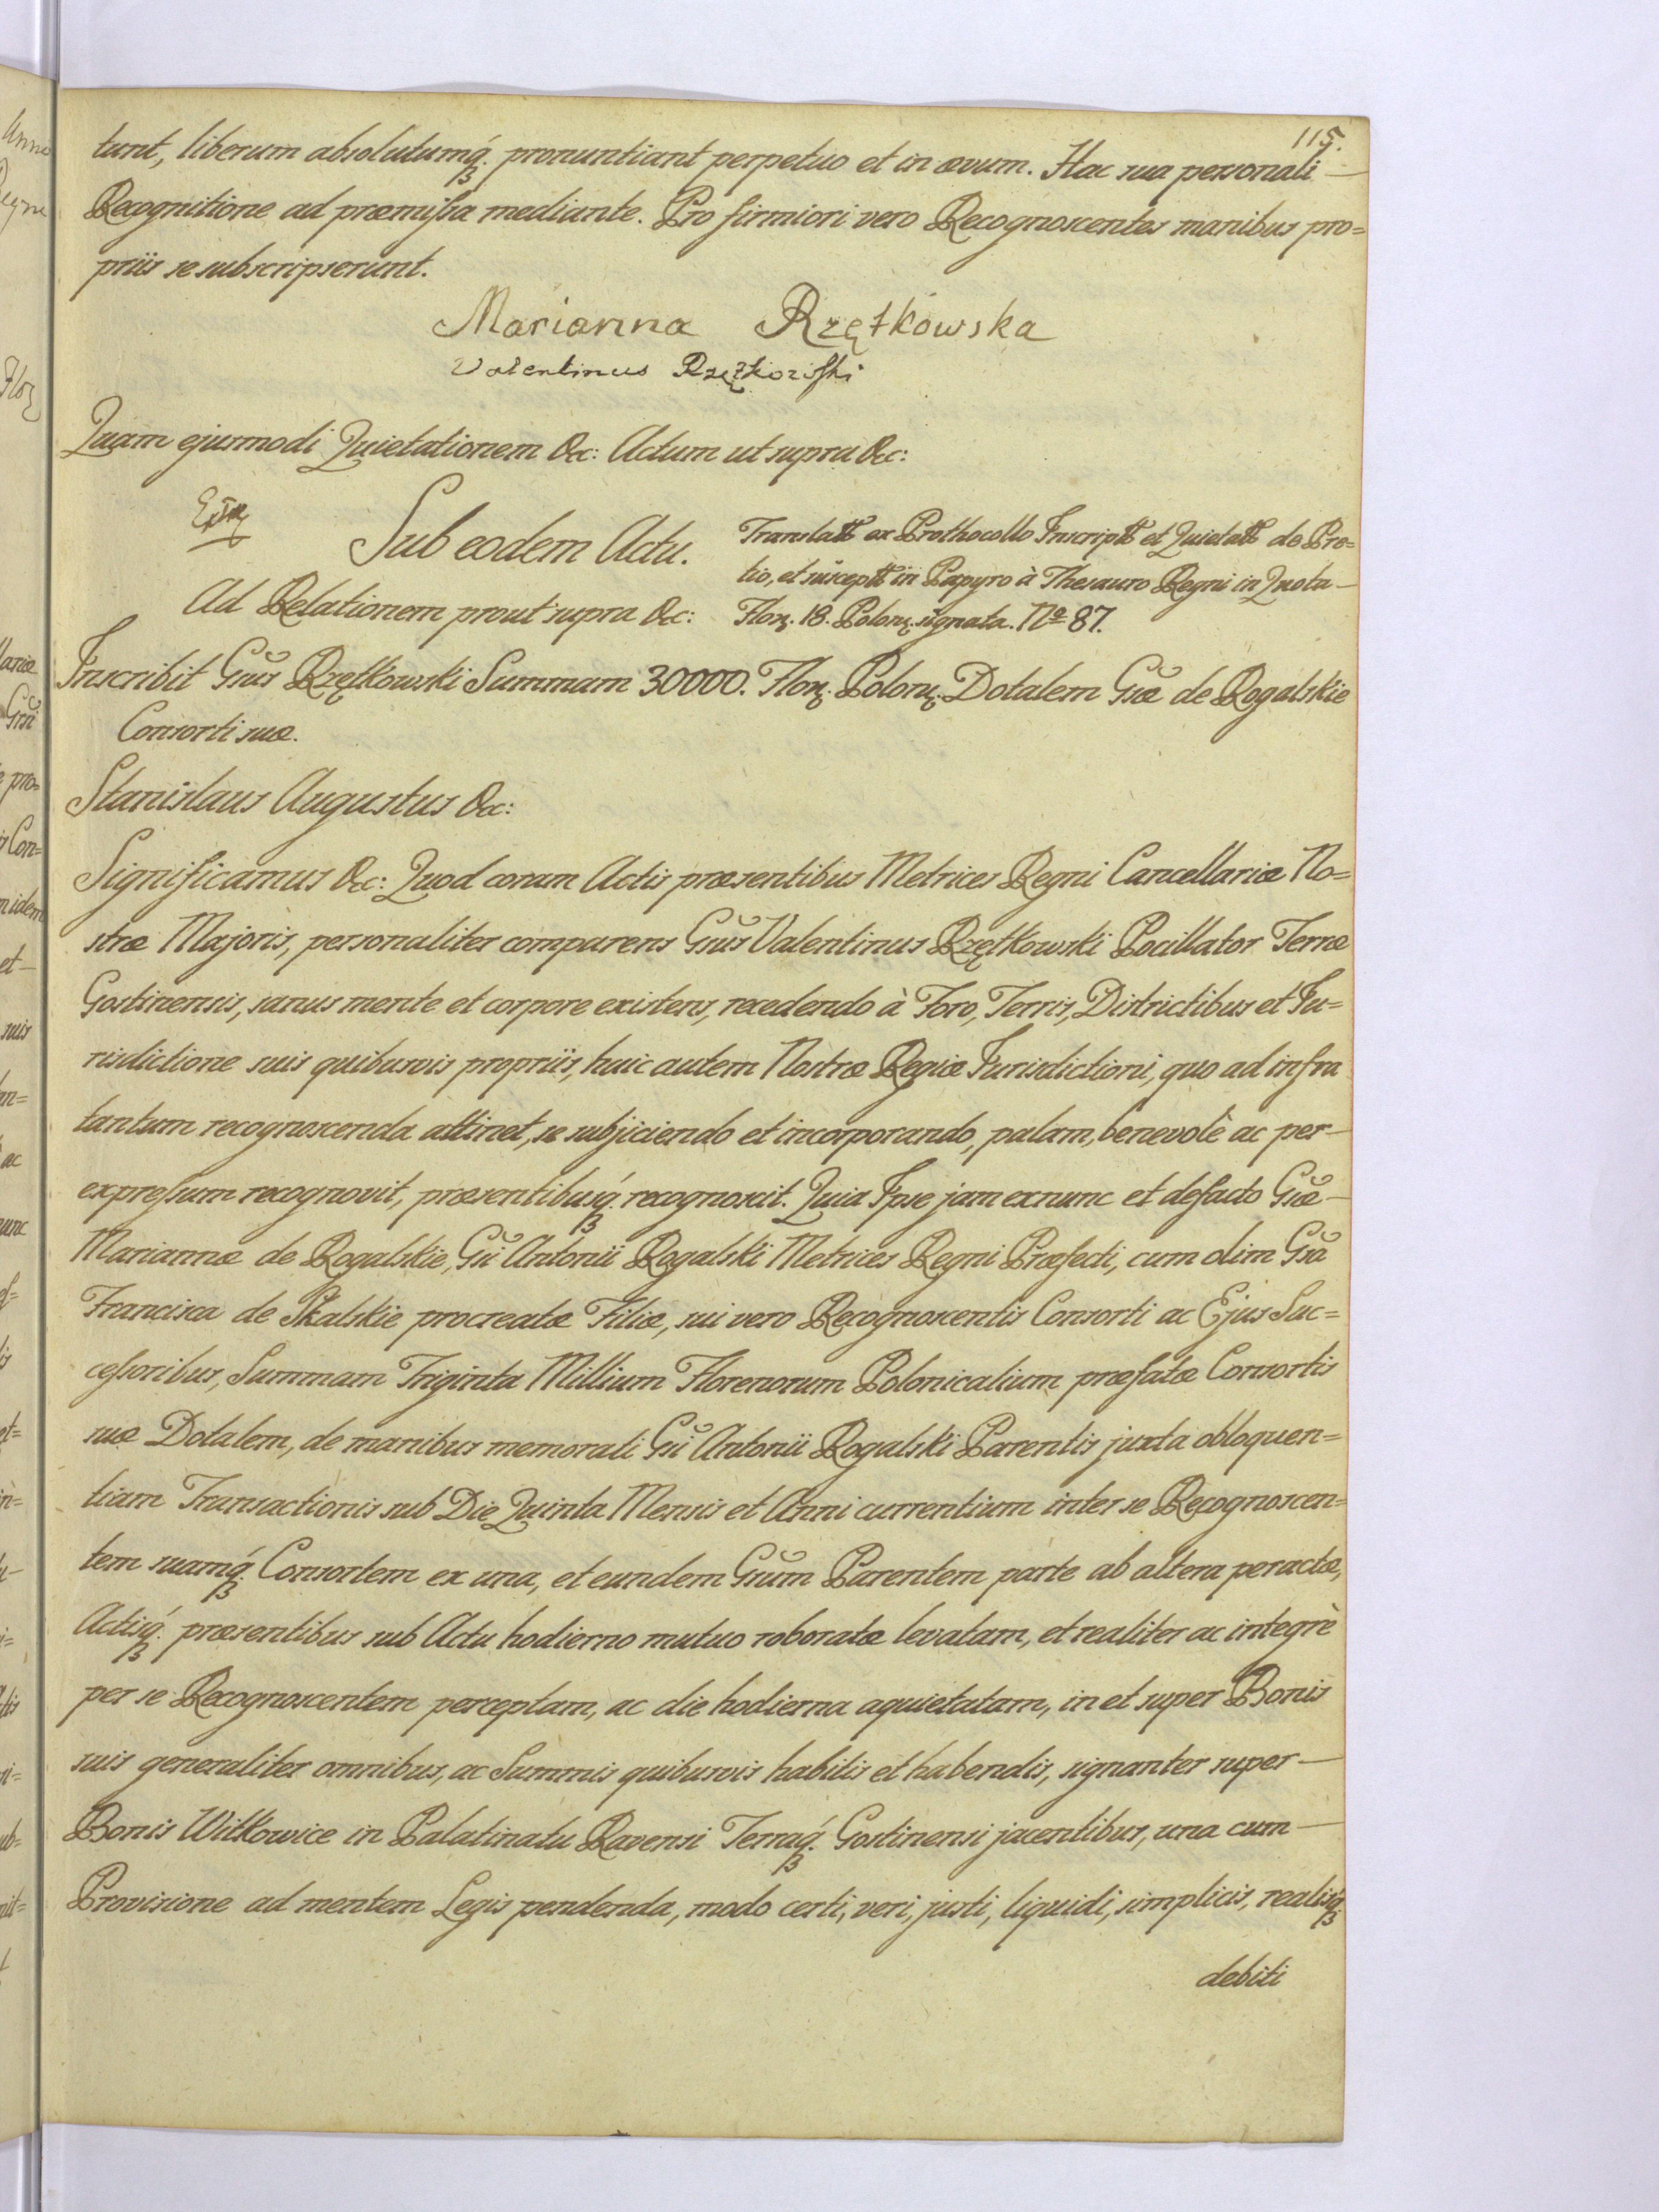 115.
tunt, liberum absolutumq́. pronuntiant perpetuo et in ævum. Hac sua personali —
Recognitione ad præmissa mediante. Pro firmiori vero Recognoscentes manibus pro=
priis se subscripserunt.
Marianna Rzętkowska
Valentinus Rzętkowski
Quam ejusmodi Quietationem &c: Actum ut supra &c:
Sub eodem Actu.
Ad Relationem prout supra &c:
Translatt ex Prothocollo Inscriptt et Quietatt de Pre=
tio, et suscептt in Papyro à Thesauro Regni in Quota —
Flor. 18. Polon. signata. No 87.
Inscribit Gsus Rzętkowski Summam 30000. Flor. Polon. Dotalem Gsæ de Rogalskie
Consorti suæ.
Stanislaus Augustus &c:
Significamus &c: Quod coram Actis præsentibus Metrices Regni Cancellariæ No=
stræ Majoris, personaliter comparens Gsus Valentinus Rzętkowski Pocillator Terræ
Gostinensis, sanus mente et corpore existens, recedendo à Foro, Terris, Districtibus et Ju=
risdictione suis quibusvis propriis, huic autem Nostræ Regiæ Jurisdictioni, quo ad infra
tantum recognoscenda attinet, se subjiciendo et incorporando, palam, benevolè ac per —
expressum recognovit, præsentibusq́. recognoscit. Quia Ipse jam exnunc et defacto Gsæ —
Mariannæ de Rogalskie, Gsi Antonii Rogalski Metrices Regni Præfecti, cum olim Gsa
Francisca de Skalskie procreatæ Filiæ, sui vero Recognoscentis Consorti ac Ejus Suc=
cessoribus, Summam Triginta Millium Florenorum Polonicalium præfatæ Consortis
suæ Dotalem, de manibus memorati Gsi Antonii Rogalski Parentis juxta obloquen=
tiam Transactionis sub Die Quinta Mensis et Anni currentium inter se Recognoscen=
tem suamq́. Consortem ex una, et eundem Gsum Parentem parte ab altera peractæ,
Actisq́. præsentibus sub Actu hodierno mutuo roboratæ levatam, et realiter ac integrè
per se Recognoscentem perceptam, ac die hodierna aquietatam, in et super Bonis
suis generaliter omnibus, ac Summis quibusvis habitis et habendis, signanter super —
Bonis Witkowice in Palatinatu Ravensi Terraq́. Gostinensi jacentibus, una cum —
Provisione ad mentem Legis pendenda, modo certi, veri, justi, liquidi, simplicis, realisq́.
debiti